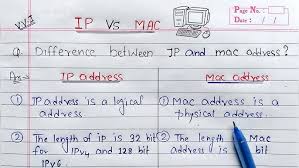 V.V.I
IP Vs MAC
Page No.
Date :
Q. Difference between IP and mac address?
Ans→
IP address
Mac address
① IP address is a logical
address.
① Mac address is a
physical address.
② The length of IP is 32 bit
for IPv4 and 128 bit
IPv6
② The length Mac
address is bit